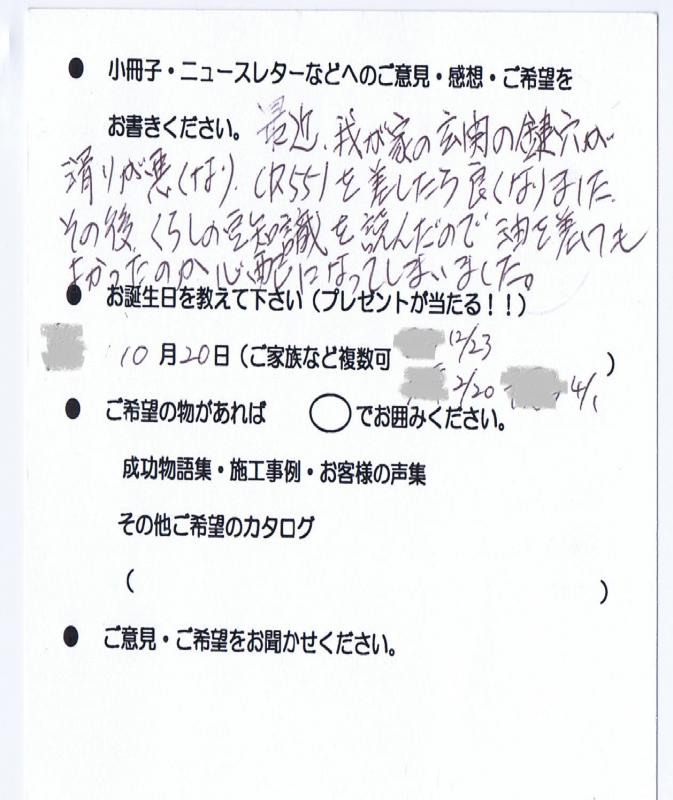 ● 小冊子・ニュースレターなどへのご意見・感想・ご希望を
お書きください。最近、我が家の玄関の鍵穴が
滑りが悪くなり、CR55)を差したら良くなりました。
その後、くらしの豆知識を読んだので油を差しても
よかったのか心配になってしまいました。
● お誕生日を教えて下さい(プレゼントが当たる!!)
10月20日(ご家族など複数可 12/23 )
2/20 4/1
● ご希望の物があれば ◯でお囲みください。
成功物語集・施工事例・お客様の声集
その他ご希望のカタログ
( )
● ご意見・ご希望をお聞かせください。